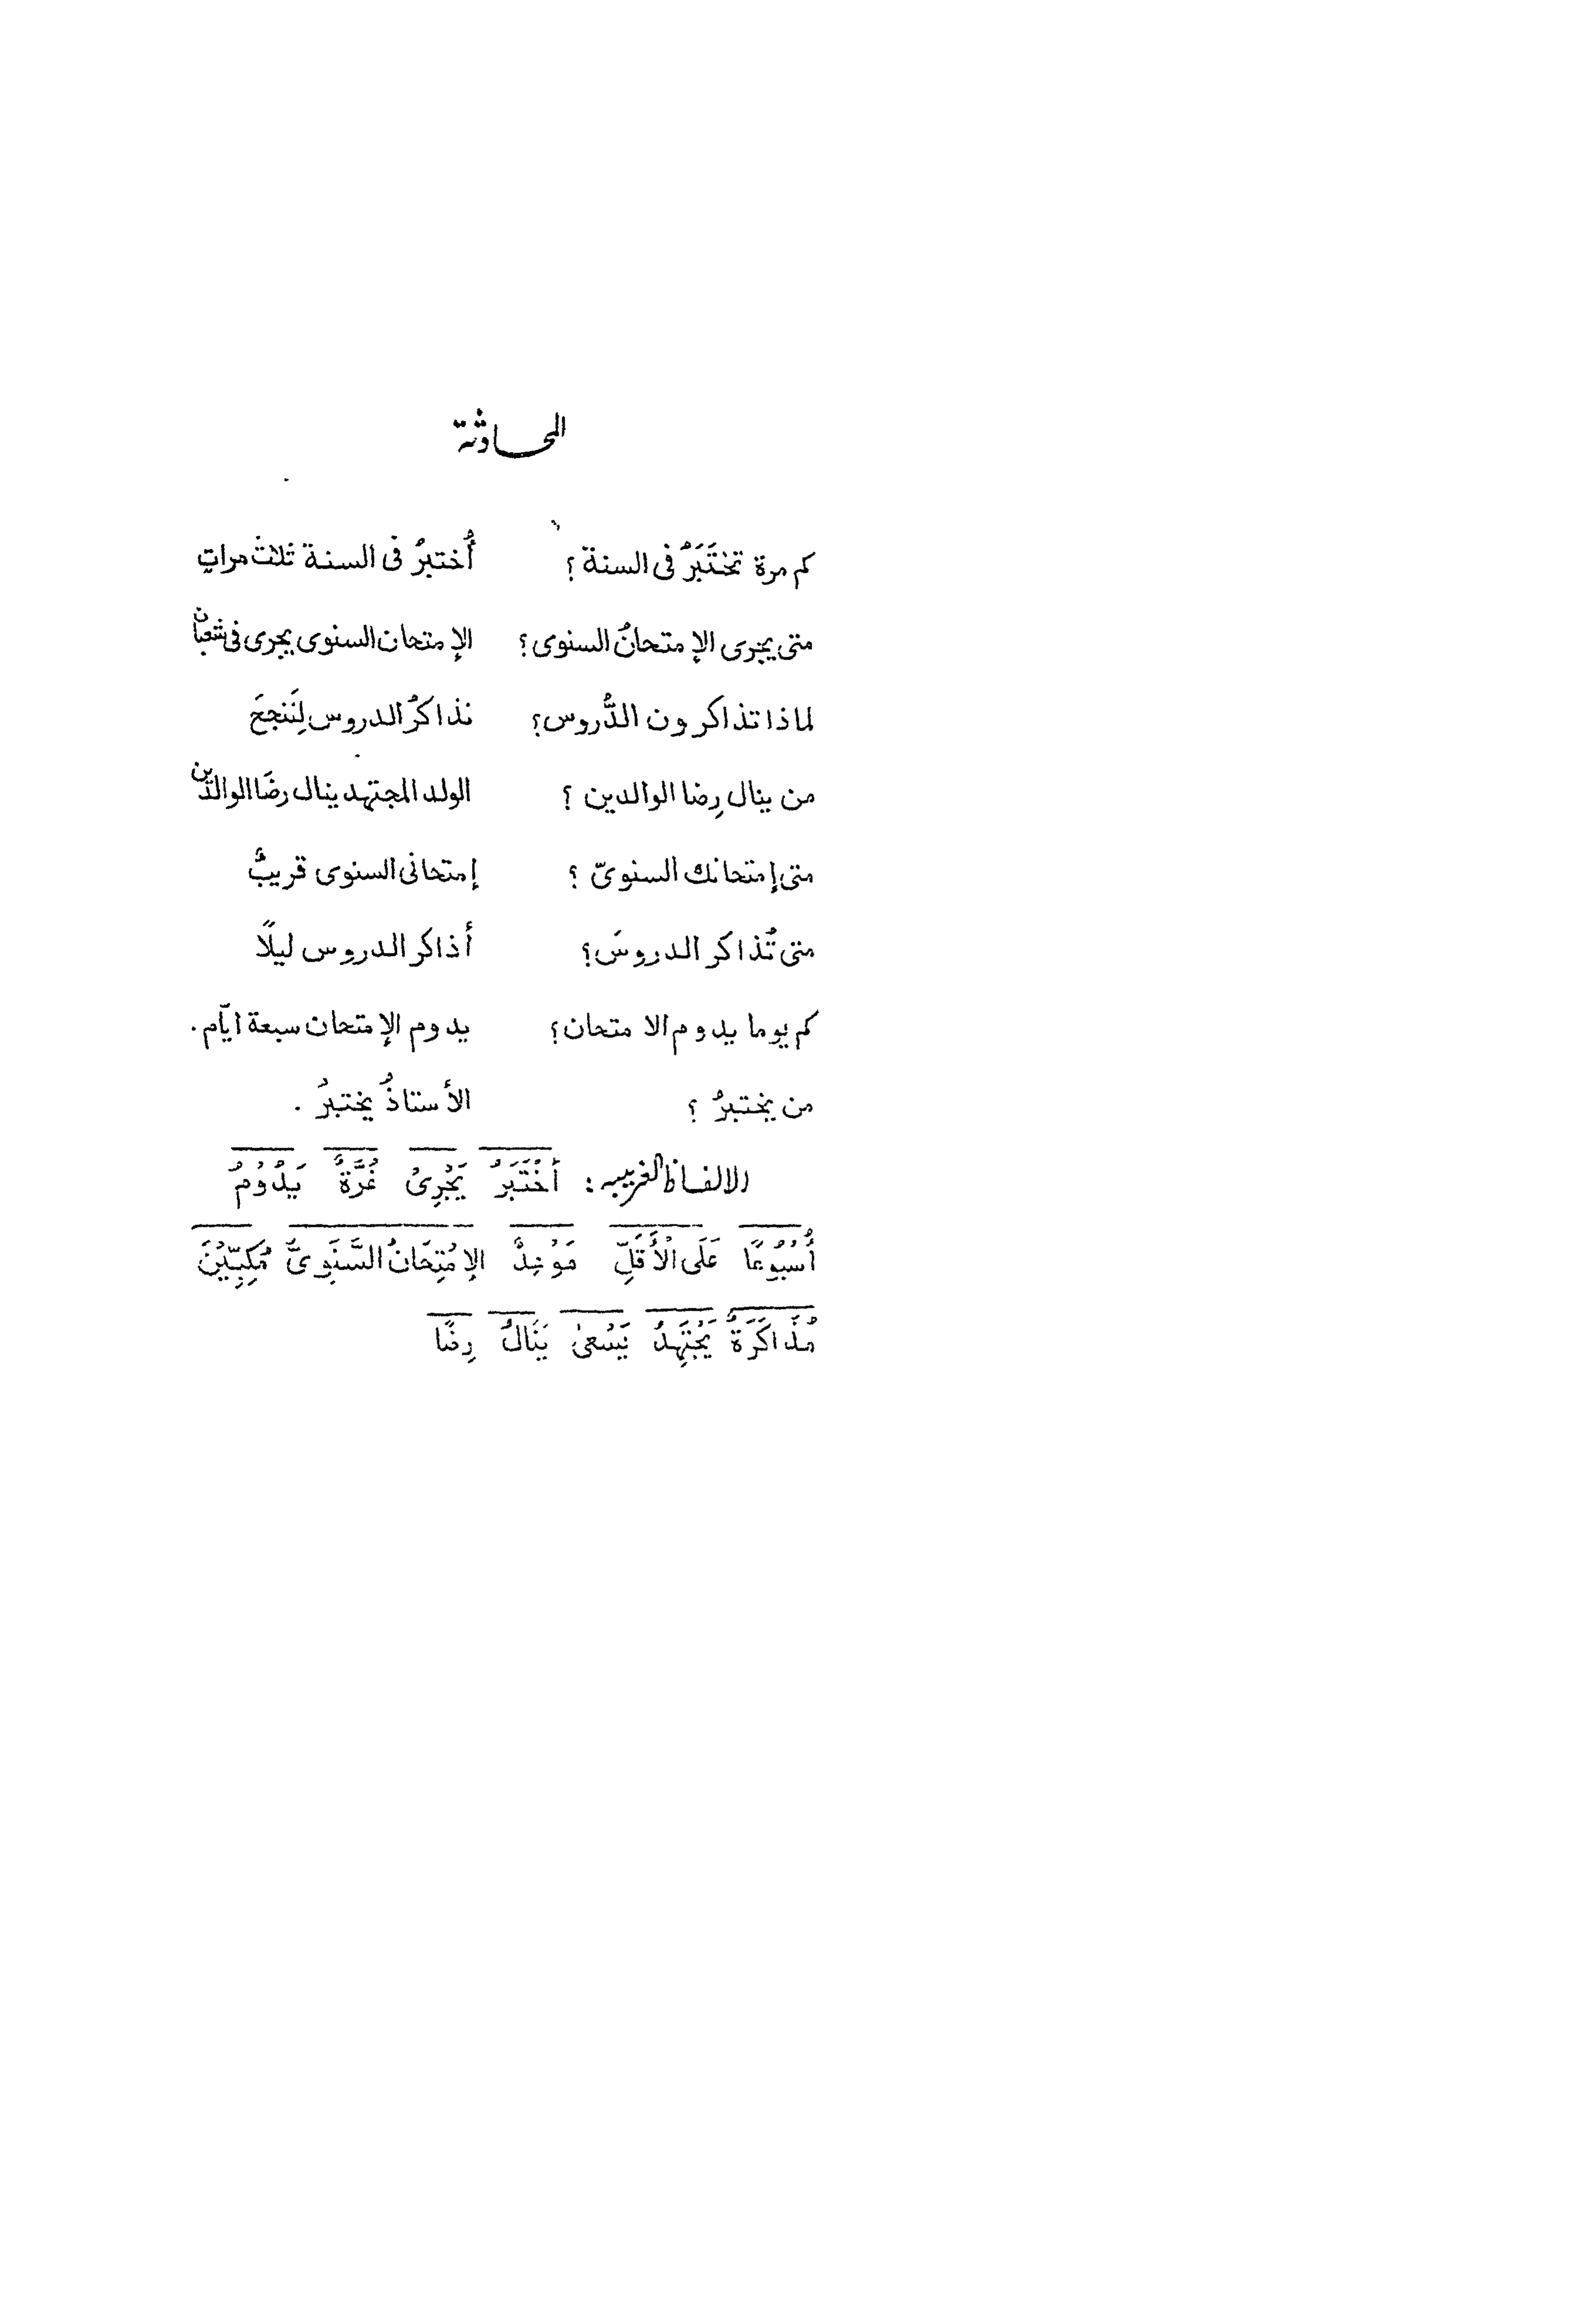 المحادثة
كم مرة تختَبَرُ فى السنة ؟ أُختبرُ فى السنة ثلاث مراتٍ
متى يجرَى الإمتحانُ السنوى؟ الإمتحان السنوى يجرى فى شعبان
لماذا تذاكرون الدُّروس؟ نذاكرُ الدروس لِنَنجحَ
من ينال رِضا الوالدين ؟ الولد المجتهد ينال رضَا الوالدَين
متى إمتحانك السنوىّ ؟ إمتحانى السنوى قريبٌ
متى تُذاكر الدروسَ؟ أذاكر الدروس ليلًا
كم يوما يدوم الامتحان؟ يدوم الإمتحان سبعة ايّام.
من يختبرُ ؟ الأستاذُ يختبرُ .
الالفاظ الغريبه: أُخْتَبَرُ يَجْرِىْ غُرَّةٌ يَدُوْمُ
أُسْبُوْعًا عَلَى الْأَقَلِّ مَوْعِدٌ الإمْتِحَانُ السَّنَوِىُّ مُكِبِّيْنَ
مُذَاكَرَةٌ يَجْتَهِدُ يَسْعىٰ يَنَالُ رِضًا